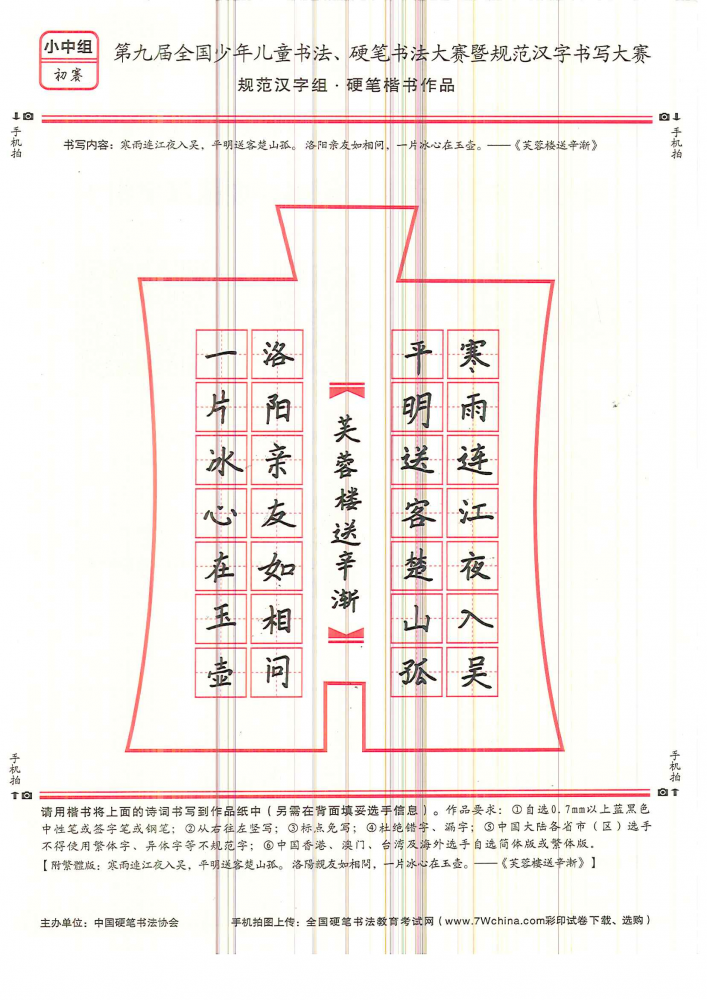 小中组
初赛
第九届全国少年儿童书法、硬笔书法大赛暨规范汉字书写大赛
规范汉字组·硬笔楷书作品
手机拍
手机拍
书写内容：寒雨连江夜入吴，平明送客楚山孤。洛阳亲友如相问，一片冰心在玉壶。——《芙蓉楼送辛渐》
寒雨连江夜入吴
平明送客楚山孤
芙蓉楼送辛渐
洛阳亲友如相问
一片冰心在玉壶
手机拍
手机拍
请用楷书将上面的诗词书写到作品纸中（另需在背面填妥选手信息）。作品要求：①自选0.7mm以上蓝黑色
中性笔或签字笔或钢笔；②从右往左竖写；③标点免写；④杜绝错字、漏字；⑤中国大陆各省市（区）选手
不得使用繁体字、异体字等不规范字；⑥中国香港、澳门、台湾及海外选手自选简体版或繁体版．
【附繁體版：寒雨連江夜入吳，平明送客楚山孤。洛陽親友如相問，一片冰心在玉壺。——《芙蓉楼送辛漸》】
主办单位：中国硬笔书法协会
手机拍图上传：全国硬笔书法教育考试网（www.7Wchina.com彩印试卷下载、选购）